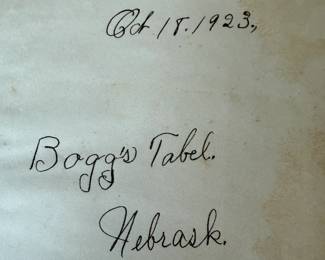 Oct 18. 1923.,
Bogg's Tabel.
Nebrask.